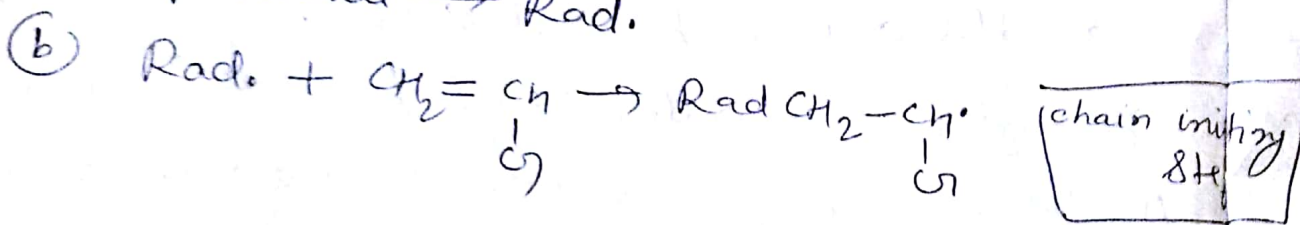 Rad.
(b) Rad. + CH2 = CH → Rad CH2 - CH•
G G
chain initizing
Step